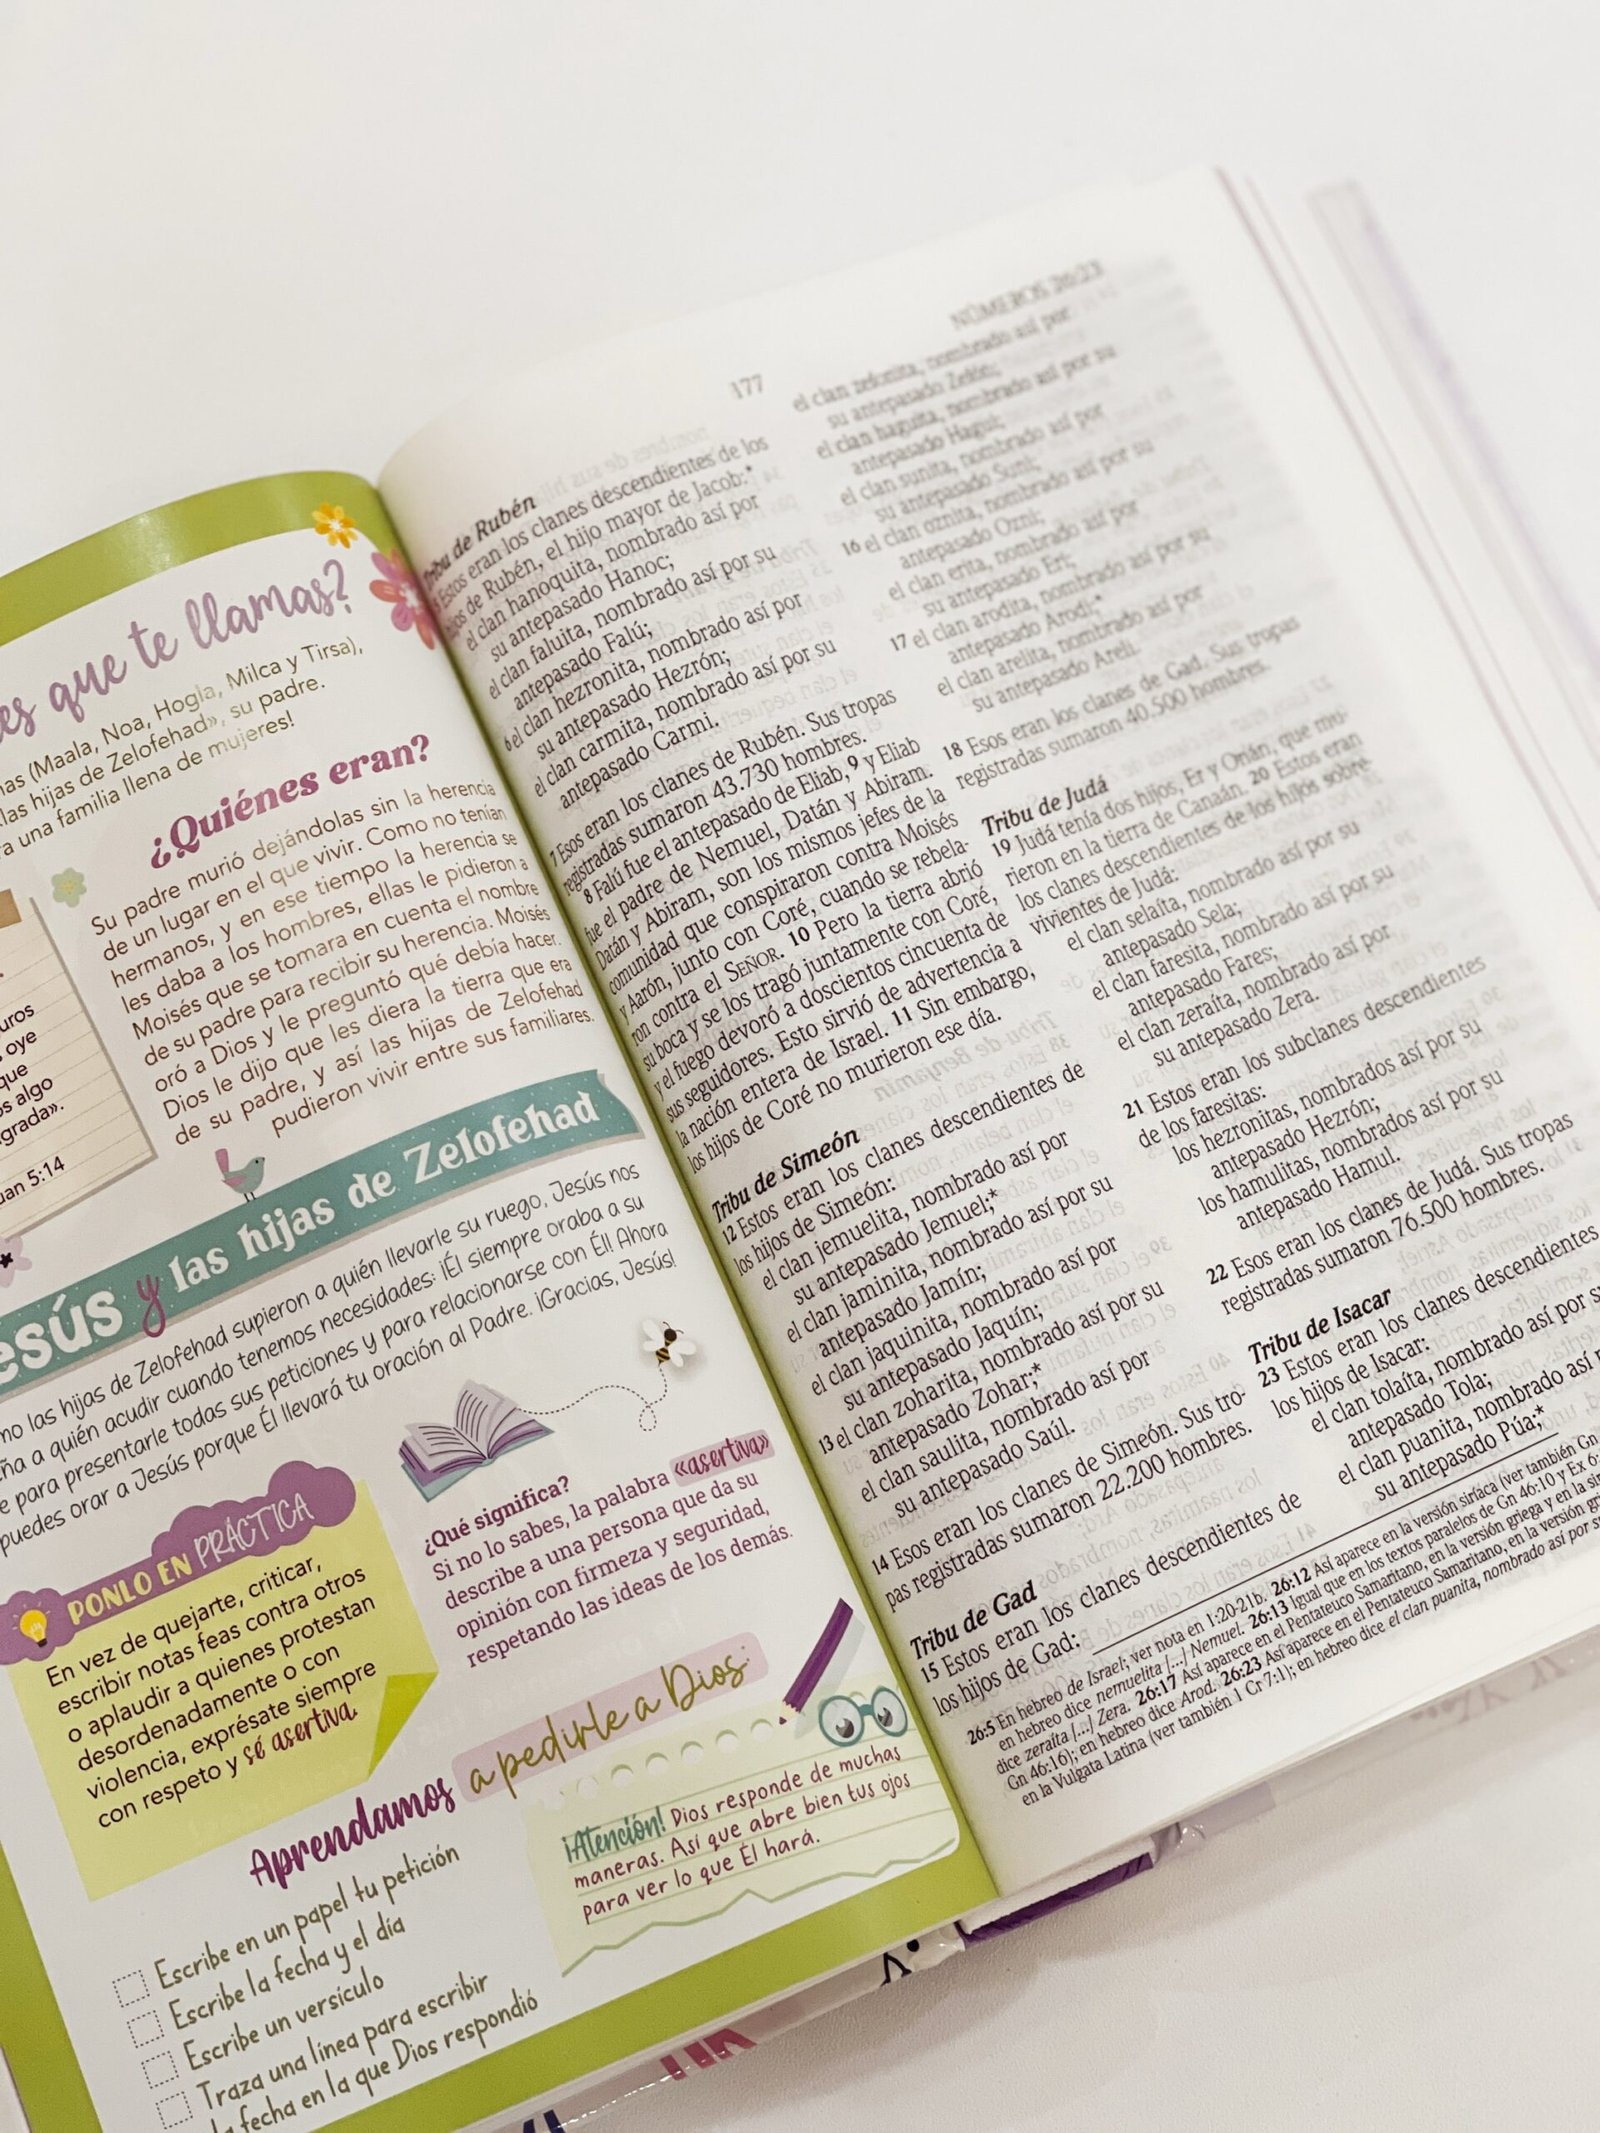 es que te llamas?
as (Maala, Noa, Hogla, Milca y Tirsa),
las hijas de Zelofehad», su padre.
a una familia llena de mujeres!
¿Quiénes eran?
Su padre murió dejándolas sin la herencia
de un lugar en el que vivir. Como no tenían
hermanos, y en ese tiempo la herencia se
les daba a los hombres, ellas le pidieron a
Moisés que se tomara en cuenta el nombre
de su padre para recibir su herencia. Moisés
oró a Dios y le preguntó qué debía hacer.
Dios le dijo que les diera la tierra que era
de su padre, y así las hijas de Zelofehad
pudieron vivir entre sus familiares.
uros
oye
que
s algo
grada».
uan 5:14
esús y las hijas de Zelofehad
mo las hijas de Zelofehad supieron a quién llevarle su ruego, Jesús nos
ña a quién acudir cuando tenemos necesidades: ¡Él siempre oraba a su
e para presentarle todas sus peticiones y para relacionarse con Él! Ahora
puedes orar a Jesús porque Él llevará tu oración al Padre. ¡Gracias, Jesús!
PONLO EN PRÁCTICA
En vez de quejarte, criticar,
escribir notas feas contra otros
o aplaudir a quienes protestan
desordenadamente o con
violencia, exprésate siempre
con respeto y sé asertiva.
¿Qué significa?
Si no lo sabes, la palabra «asertiva»
describe a una persona que da su
opinión con firmeza y seguridad,
respetando las ideas de los demás.
Aprendamos a pedirle a Dios
Escribe en un papel tu petición
Escribe la fecha y el día
Escribe un versículo
Traza una línea para escribir
la fecha en la que Dios respondió
¡Atención! Dios responde de muchas
maneras. Así que abre bien tus ojos
para ver lo que Él hará.
177
NÚMEROS 26:23
Tribu de Rubén
5 Estos eran los clanes descendientes de los
hijos de Rubén, el hijo mayor de Jacob:*
el clan hanoquita, nombrado así por
su antepasado Hanoc;
el clan faluita, nombrado así por su
antepasado Falú;
6 el clan hezronita, nombrado así por
su antepasado Hezrón;
el clan carmita, nombrado así por su
antepasado Carmi.
7 Esos eran los clanes de Rubén. Sus tropas
registradas sumaron 43.730 hombres.
8 Falú fue el antepasado de Eliab, 9 y Eliab
fue el padre de Nemuel, Datán y Abiram.
Datán y Abiram, son los mismos jefes de la
comunidad que conspiraron contra Moisés
y Aarón, junto con Coré, cuando se rebela-
ron contra el SEÑOR. 10 Pero la tierra abrió
su boca y se los tragó juntamente con Coré,
y el fuego devoró a doscientos cincuenta de
sus seguidores. Esto sirvió de advertencia a
la nación entera de Israel. 11 Sin embargo,
los hijos de Coré no murieron ese día.
Tribu de Simeón
12 Estos eran los clanes descendientes de
los hijos de Simeón:
el clan jemuelita, nombrado así por
su antepasado Jemuel;*
el clan jaminita, nombrado así por su
antepasado Jamín;
el clan jaquinita, nombrado así por
su antepasado Jaquín;
13 el clan zoharita, nombrado así por su
antepasado Zohar;*
el clan saulita, nombrado así por
su antepasado Saúl.
14 Esos eran los clanes de Simeón. Sus tro-
pas registradas sumaron 22.200 hombres.
Tribu de Gad
15 Estos eran los clanes descendientes de
los hijos de Gad:
el clan zefonita, nombrado así por
su antepasado Zefón;
el clan haguita, nombrado así por su
antepasado Hagui;
el clan sunita, nombrado así por
su antepasado Suni;
16 el clan oznita, nombrado así por su
antepasado Ozni;
el clan erita, nombrado así por
su antepasado Eri;
17 el clan arodita, nombrado así por su
antepasado Arodi;*
el clan arelita, nombrado así por
su antepasado Areli.
18 Esos eran los clanes de Gad. Sus tropas
registradas sumaron 40.500 hombres.
Tribu de Judá
19 Judá tenía dos hijos, Er y Onán, que mu-
rieron en la tierra de Canaán. 20 Estos eran
los clanes descendientes de los hijos sobre-
vivientes de Judá:
el clan selaíta, nombrado así por su
antepasado Sela;
el clan faresita, nombrado así por su
antepasado Fares;
el clan zeraíta, nombrado así por
su antepasado Zera.
21 Estos eran los subclanes descendientes
de los faresitas:
los hezronitas, nombrados así por su
antepasado Hezrón;
los hamulitas, nombrados así por su
antepasado Hamul.
22 Esos eran los clanes de Judá. Sus tropas
registradas sumaron 76.500 hombres.
Tribu de Isacar
23 Estos eran los clanes descendientes
los hijos de Isacar:
el clan tolaíta, nombrado así por su
antepasado Tola;
el clan puanita, nombrado así
su antepasado Púa;*
26:5 En hebreo de Israel; ver nota en 1:20-21b. 26:12 Así aparece en la versión siríaca (ver también Gn
en hebreo dice nemuelita [...] Nemuel. 26:13 Igual que en los textos paralelos de Gn 46:10 y Ex 6:
dice zeraíta [...] Zera. 26:17 Así aparece en el Pentateuco Samaritano, en la versión griega y en la
Gn 46:16); en hebreo dice Arod. 26:23 Así aparece en el Pentateuco Samaritano, en la versión
en la Vulgata Latina (ver también 1 Cr 7:1); en hebreo dice el clan puanita, nombrado así por